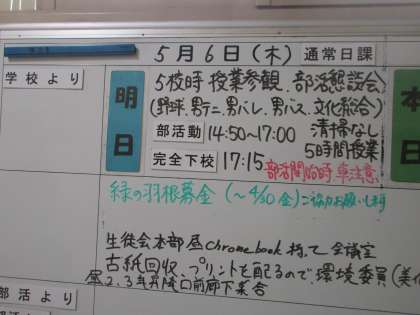 5月6日(木) 通常日課
学校より
明日
本日
5校時 授業参観、部活懇談会
(野球、男テニ、男バレ、男バス、文化総合)
部活動 14:50~17:00 清掃なし
5時間授業
完全下校 17:15 部活開始時 車注意
緑の羽根募金 (~4/30金) ご協力お願いします
生徒会本部 昼Chromebook 持って会議室
古紙回収、プリントを配るので、環境委員(美化
昼2.3年昇降口前廊下集合
部活より